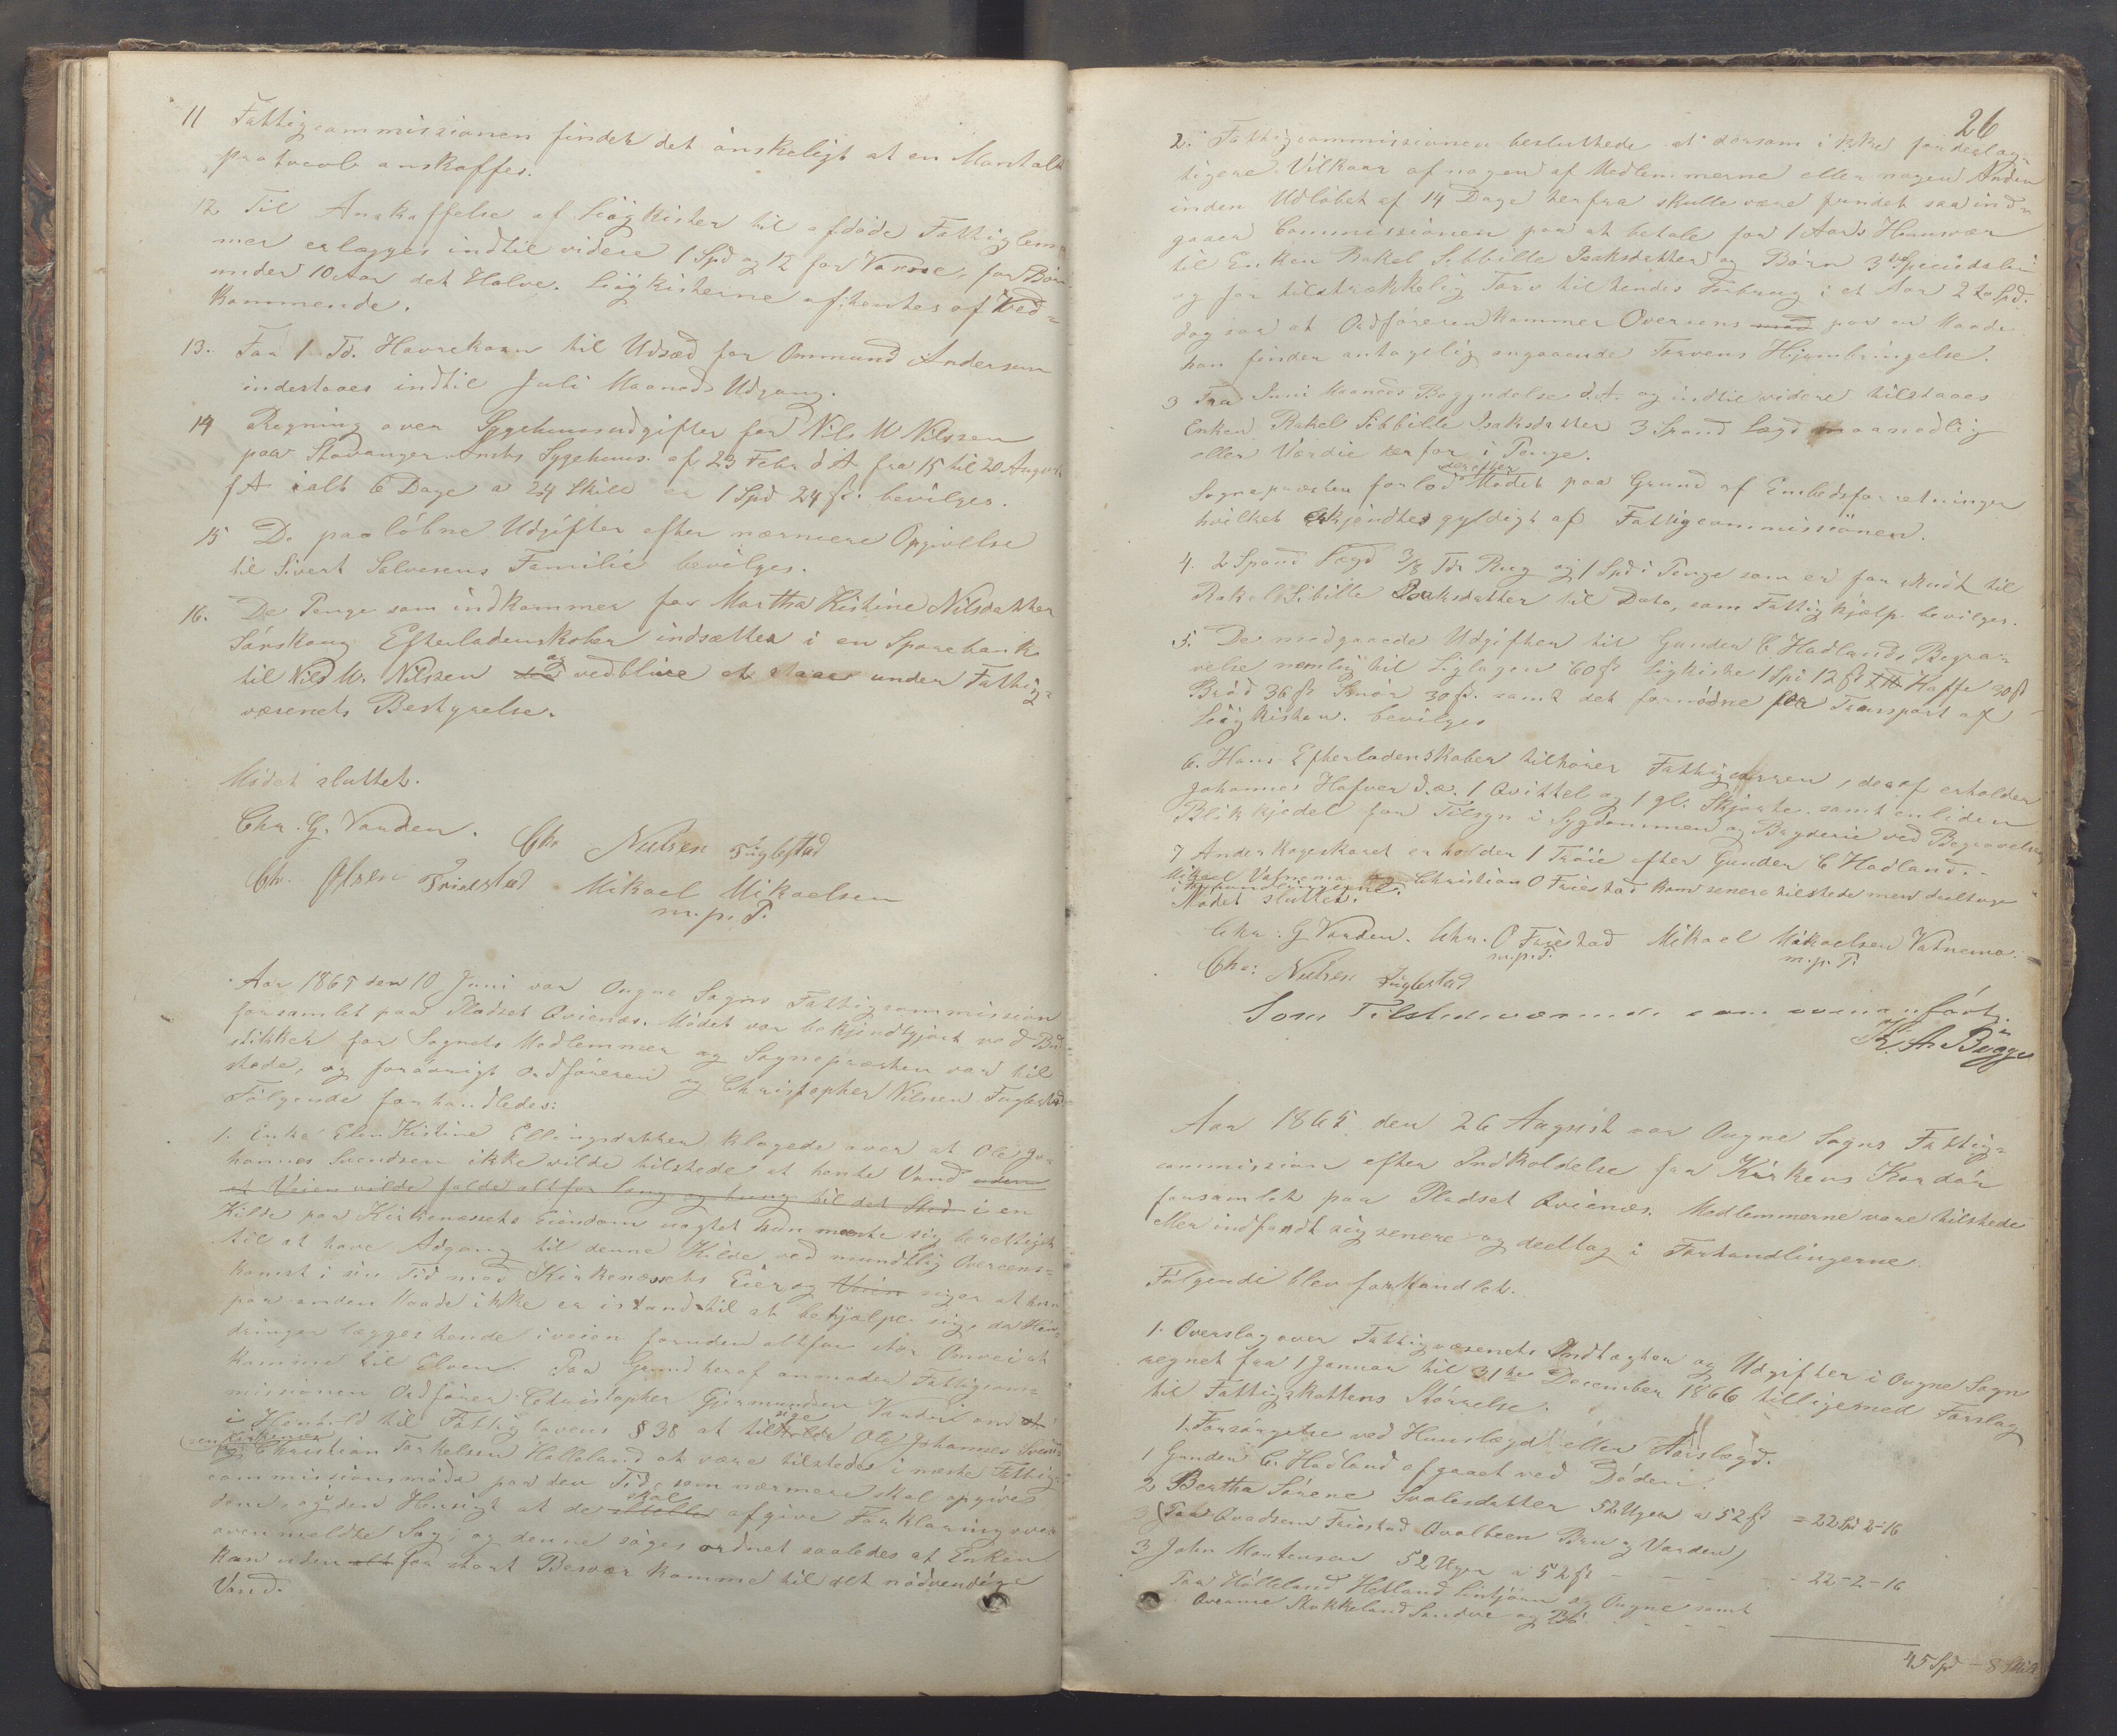 11 Fattigcommissionen finder det önskeligt at en Mantals
protocol anskaffes.
12 Til Anskaffelse af Liigkister til afdöde Fattiglem
mer erlægges indtil videre 1 Spd og 12 for Voxne, for Börn
under 10 Aar det Halve. Liigkisterne afhentes af Ved-
kommende.
13. Faa 1 Td. Havrekorn til Udsæd for Ommund Andersen
inderstaaes indtil Juli Maaneds Udgang.
14 Regning over Sygehuusudgifter for Nils M Nilssen
paa Stavanger Amts Sygehuus af 23 Febr d A fra 15 til 20 August
f A ialt 6 Dage a 24 Skill er 1 Spd 24 ß. bevilges.
15 De paalöbne Udgifter efter nærmere Opgivelse
til Sivert Salvesens Familie bevilges.
16. De Penge som indkommer for Martha Kistine Nilsdatter
Sörskoug Efterladenskaber indsættes i en Sparebank
til Nils M. Nilssen og vedblive at staae under Fattig-
væsenets Bestyrelse.
Mödet sluttet.
Chr. G. Varden. Chr Nielsen Fuglestad
Chr. Olsen Friestad Mikael Mikaelsen
m. p. P.
Aar 1865 den 10 Juni var Ougne Sogns Fattigcommission
forsamlet paa Pladset Qvienæs. Mödet var bekjendtgjort ved Bud-
stikker for Sognets Medlemmer og Sognepræsten var til
stede, og forövrigt Ordföreren og Christopher Nilsen Fuglestad
Fölgende forhandledes:
1. Enke Elen Kistine Ellingsdatter klagede over at Ole Jo-
hannes Svendsen ikke vilde tilstede at hente Vand uden
at Veien vilde falde altfor lang og tung til det Sted i en
Kilde paa Kirkenæssets Eiendom uagtet hun meente sig berettiget
til at have Adgang til denne Kilde ved mundtlig Overeens-
komst i sin Tid med Kirkenæssets Eier og siger at hun
paa anden Maade ikke er istand til at behjælpe sig, da Hin-
dringer lægges hende iveien foruden altfor stor Omvei at
komme til Elven. Paa Grund heraf anmoder Fattigcom-
missionen Ordförer Christopher Giermundsen Varden om at
i Henhold til Fattiglovens § 38 at tilsige Ole Johannes Svend-
sen Kirkenæs
og Christian Torkelsen Holleland at være tilstede i næste Fattig-
commissionsmöde paa den Tid, som nærmere skal opgives
dem, og i den Hensigt at de skal afgive Forklaring over
ovenmeldte Sag, og denne söges ordnet saaledes at Enken
kan uden alt for stort Besvær komme til det nödvendige
Vand.
26
2. Fattigcommissionen besluttede at dersom ikke fordelag-
tigere Vilkaar af nogen af Medlemmerne eller nogen Anden
inden Udlöbet af 14 Dage herfra skulle være fundet saa ind-
gaaer Commissionen paa at betale for 1 Aars Huusvær
til Enken Rakel Sibbille Isaksdatter og Börn 3 Speciedaler
og for tilstrækkelig Torv til hendes Forbrug i et Aar 2 Spd.
dog saa at Ordföreren kommer Overeens med paa en Maade
han finder antagelig angaaende Torvens Hjembringelse.
3 Fra Juni Maaneds Begyndelse d. A. og indtil videre tilstaaes
Enken Rakel Sibbille Isaksdatter 3 Spand Lægd maanedlig
eller Værdie herfor i Penge.
Sognepræsten forlod derefter Mödet paa Grund af Embedsforretninger
hvilket erkjendtes gyldigt af Fattigcommissionen.
4. 2 Spand Lægd 3/8 Tdr Rug og 1 Spd i Penge som er forskudt til
Rakel Sibille Isaksdatter til Dato, som Fattighjælp bevilges.
5. De medgaaede Udgifter til Gunder C Hadlands Begra-
velse nemlig til Liglagen 60 ß Ligkiste 1 Spd 12 ß Kaffe 30 ß
Bröd 36 ß Smör 30 ß. samt det fornödne for Transport af
Liigkisten. bevilges
6. Hans Efterladenskaber tilhörer Fattigcassen, deraf erholder
Johannes Hafver d.æ. 1 Qvittel og 1 gl. Skjorte samt en liden
Blikkjedel for Tilsyn i Sygdommen og Bryderie ved Begravelsen
7 Anders Kogeskaret erholder 1 Tröie efter Gunder C Hadland.
Mikael Vatnemo og Christian O Friestad kom senere tilstede men deeltoge
i Forhandlingerne.
Mödet sluttet.
Chr. G Varden. Chr. O Friestad Mikael Mikaelsen Vatnemo.
m. p. P. m. p. P.
Chr: Nielsen Fuglestad
Som Tilstedeværende som ovenanfört.
A. Bugge
Aar 1865 den 26 August var Ougne Sogns Fattig-
commission efter Indkaldelse fra Kirkens Kordör
forsamlet paa Pladset Qvienæs. Medlemmerne vare tilstede
eller indfandt sig senere og deeltog i Forhandlingerne.
Fölgende blev forhandlet.
1. Overslag over Fattigvæsenets Indtægter og Udgifter i Ougne Sogn
regnet fra 1 Januar til 31te December 1866 tilligemed Forslag
til Fattigskattens Störrelse.
1. Forsörgelse ved Huuslægd eller Aarslægd.
1 Gunder C. Hadland afgaaet ved Döden.
2 Bertha Sörene Svalesdatter 52 Uger a 52 ß = 22 Spd 2-16
(Paa Qvadsem Friestad Qvalbeen Bru og Varden)
3 John Mortensen 52 Uger a 52 ß - - - - - 22-2-16
Paa Hölleland Hetland Lintjörn og Ougne samt
Qveanne Stokkeland Sandve og Bö
45 Spd - 8 Skill